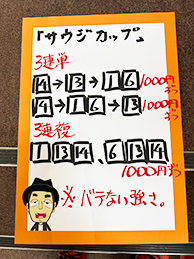 『サウジカップ』
3連単
4→13→1 6 1000円ずつ
4→1 6→13 1000円ずつ
3連複
1 13 14、6 13 14
1000円ずつ
※バテない強さ。